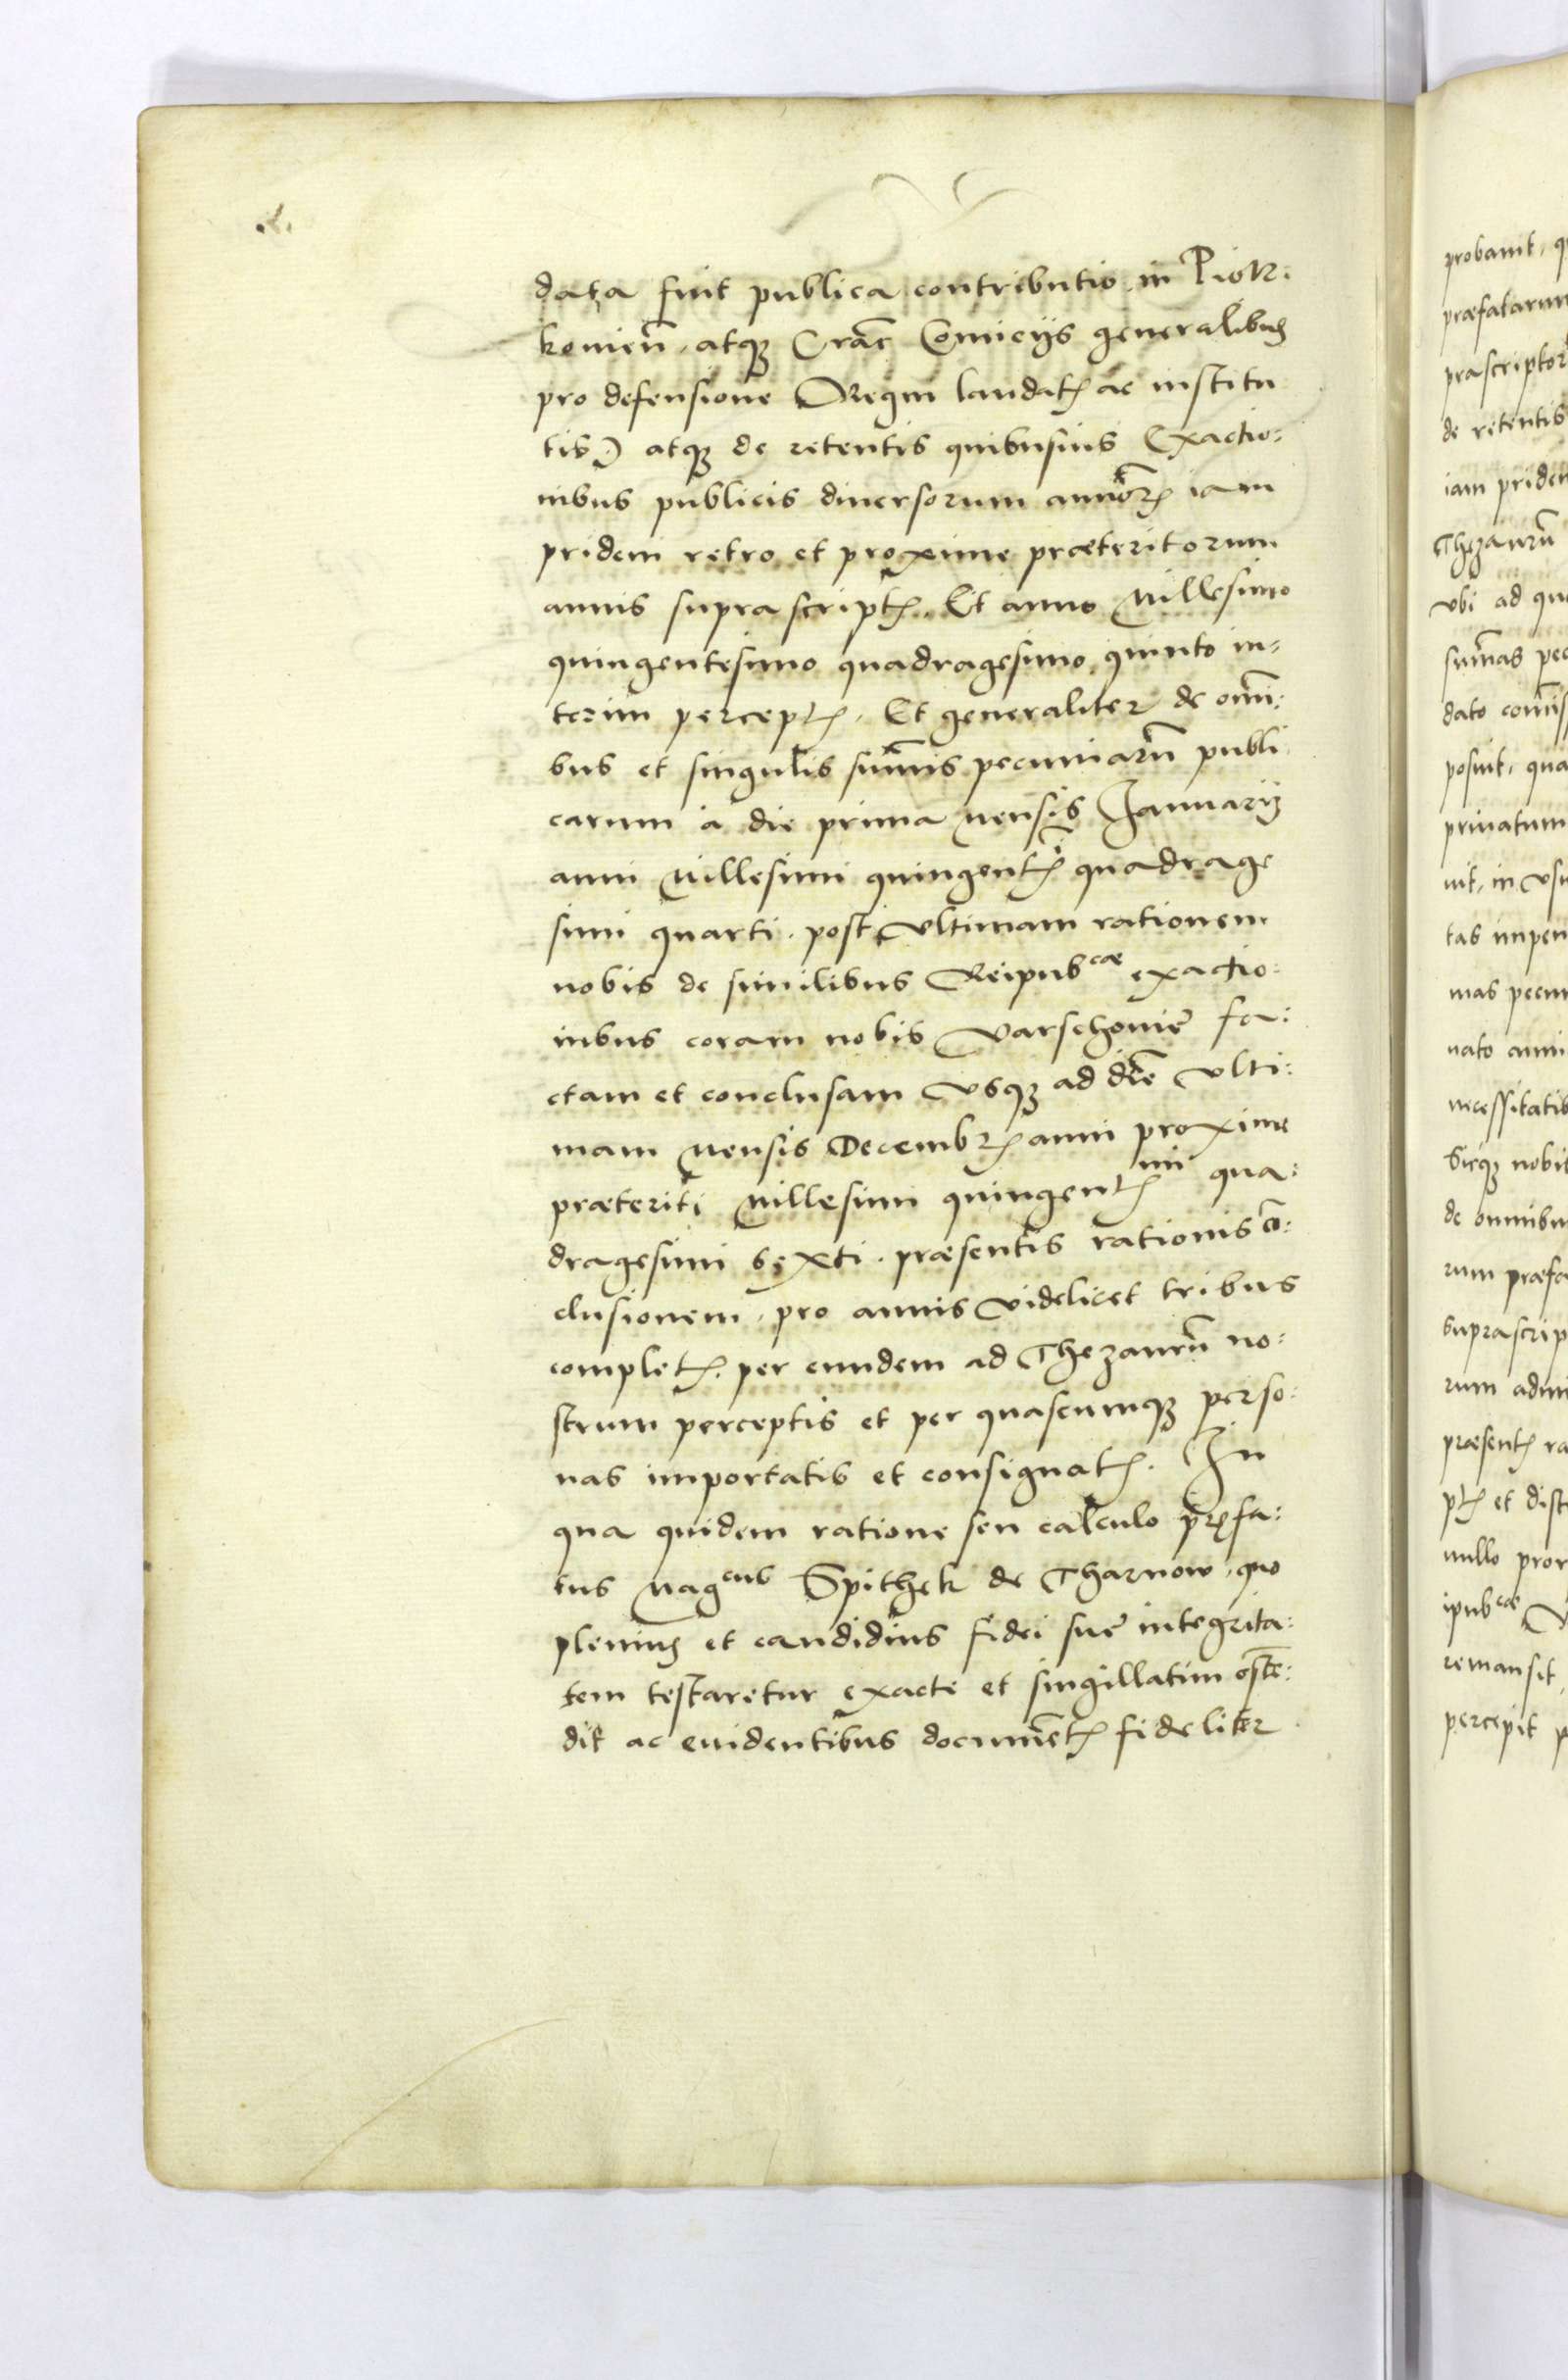 data fuit publica contributio in Piotr:
kouien̄. atqꝫ Crac̄ Comicijs generalibus
pro defensione Regni laudatꝭ ac institu
tis) atqꝫ de retentis quibusuis Exactio:
nibus publicis diuersorum annorꝭ iam
pridem retro et proxime præteritorum
annis suprascriptꝭ. Et anno Millesimo
quingentesimo quadragesimo quinto in:
terim perceptꝭ. Et generaliter de omni:
bus et singulis sum̄is pecuniarū publi
carum à die prima Mensis Januarij
anni Millesimi quingentꝭi quadrage
simi quarti. post vltimam rationem
nobis de similibus Reipubcae exactio:
nibus coram nobis Varschouie fa:
ctam et conclusam vsqꝫ ad diē vlti:
mam Mensis Decembrꝭ anni proxime
præteriti Millesimi quingentꝭmi qua:
dragesimi sexti. præsentis rationis cō:
clusionem. pro annis videlicet tribus
completꝭ. per eundem ad Thezaurū no:
strum perceptis et per quascumqꝫ perso:
nas importatis et consignatꝭ. In
qua quidem ratione seu calculo præfa:
tus Magcus Spithek de Tharnow. quo
plenius et candidius fidei sue integrita:
tem testaretur exacte et singillatim ostē:
dit ac euidentibus documētꝭ fideliter
probauit.
præfatarum
præscriptor
de retentis
iam pridem
Thezaurū
vbi ad
sum̄as
dato
posuit.
priuatum
uit. in
tas
mas
uato anni
necessitatib
Sicqꝫ nobis
de omnibu
rum præfa
suprascrip
rum
præsentꝭ
ptꝭ et
nullo
ipubcae
remansit
percepit